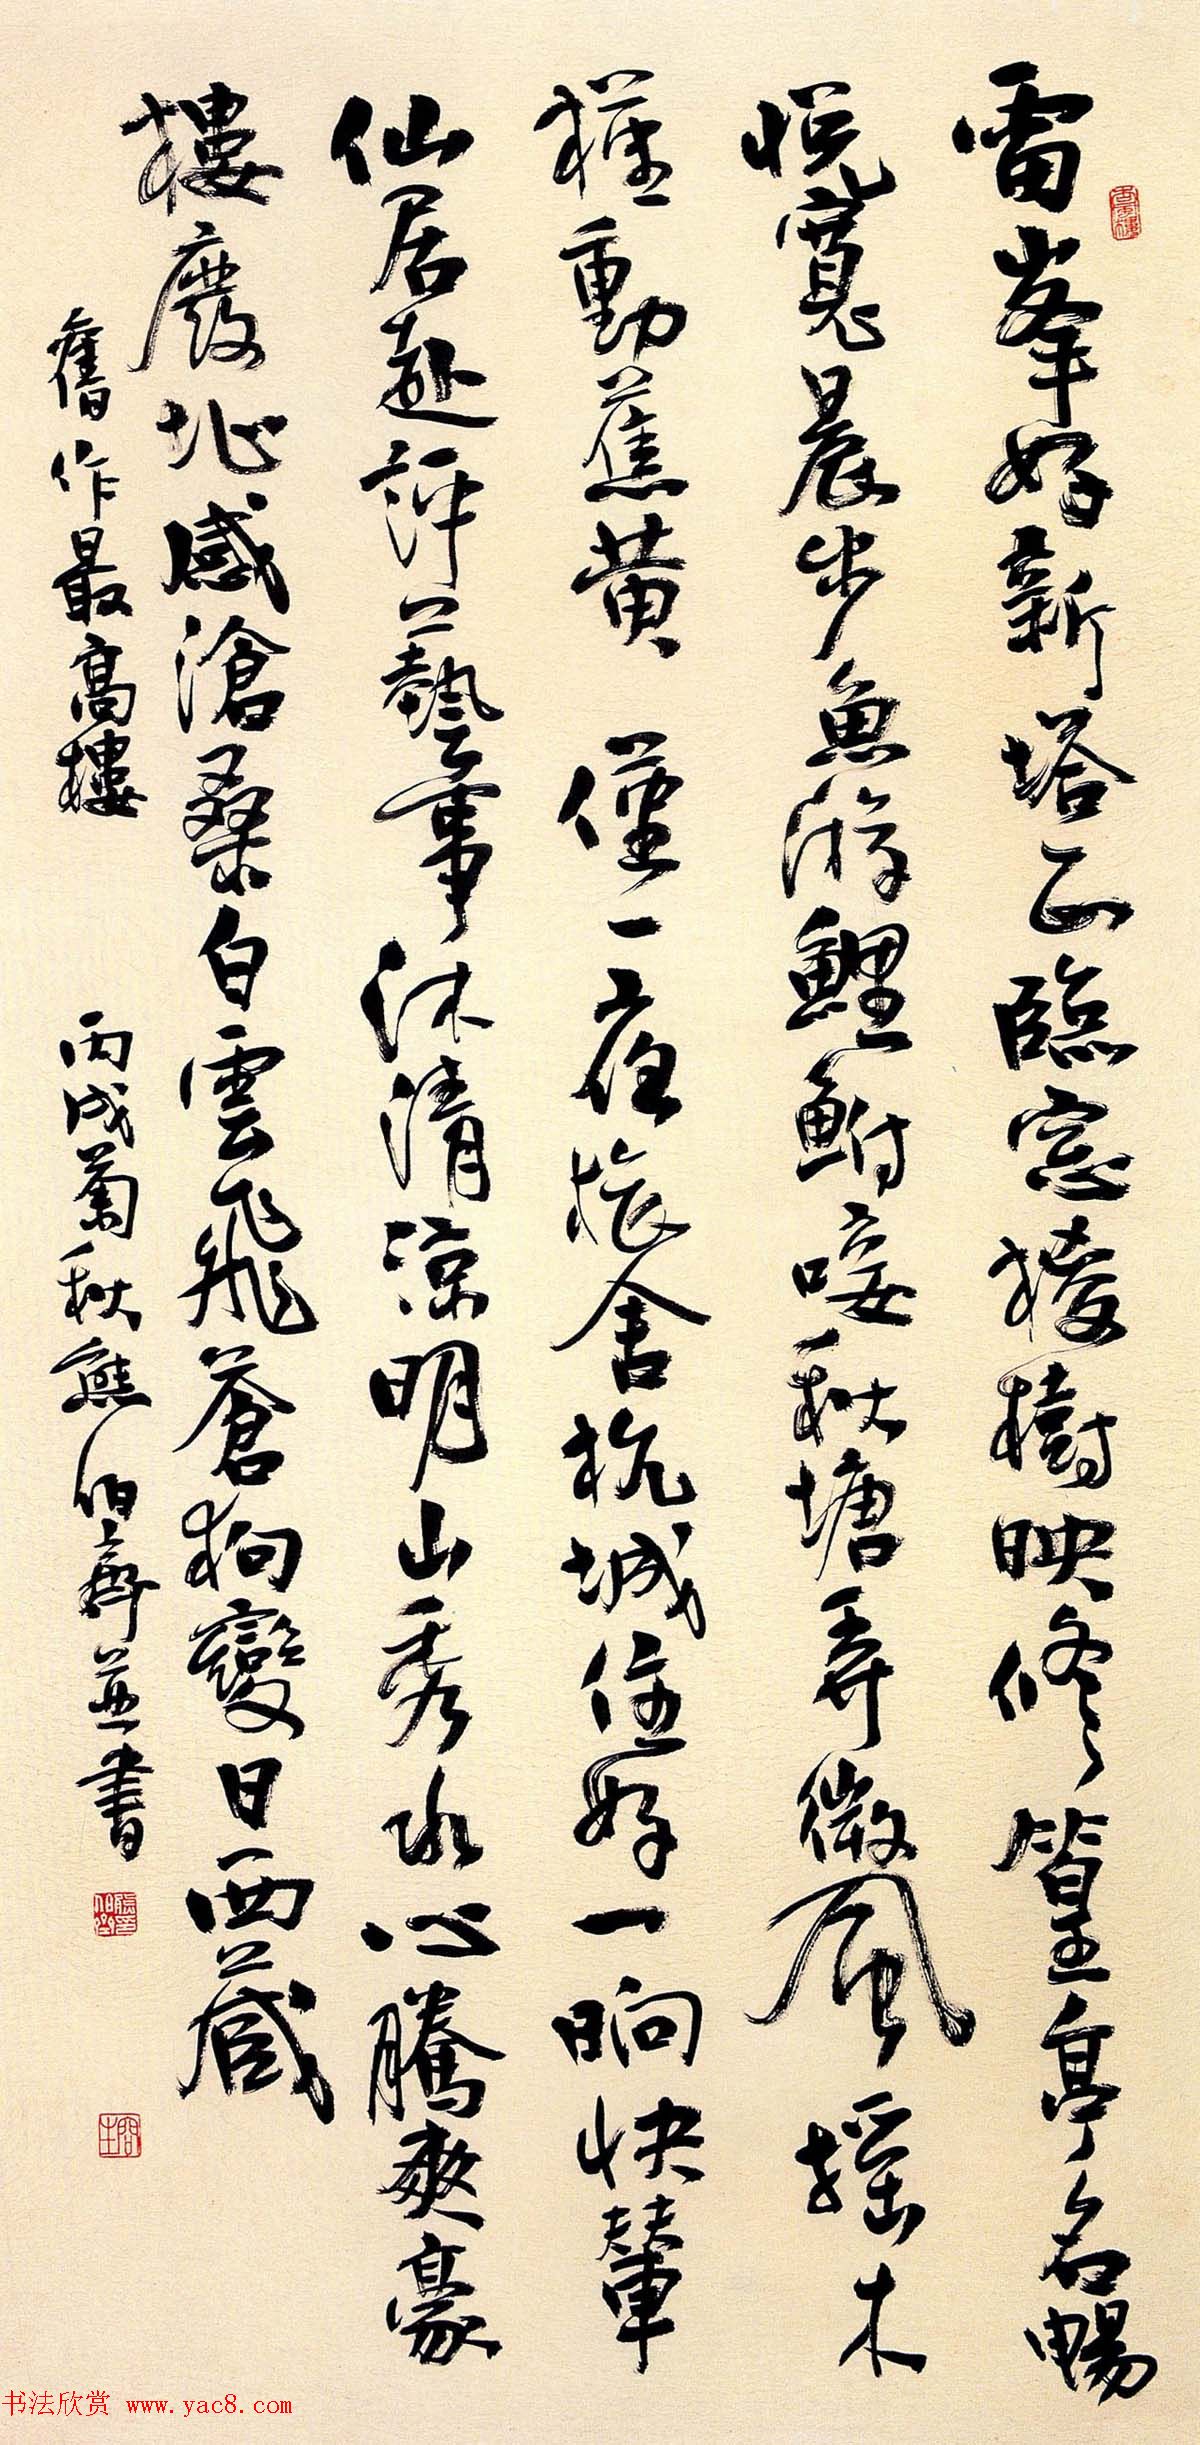 雷峯好新塔正臨窓接樹映修篁亭名暢
悦寬晨步魚游鯉鮒唼秋塘弄微風摇木
槿動蕉黄 僅一夜旅舍杭城住好一晌快輦
仙居赴評藝事沐清涼明山秀水心騰爽豪
樓廢圯感滄桑白雲飛蒼狗變日西藏
舊作最高樓
丙戌菊秋熊伯齊並書
书法欣赏 www.yac8.com